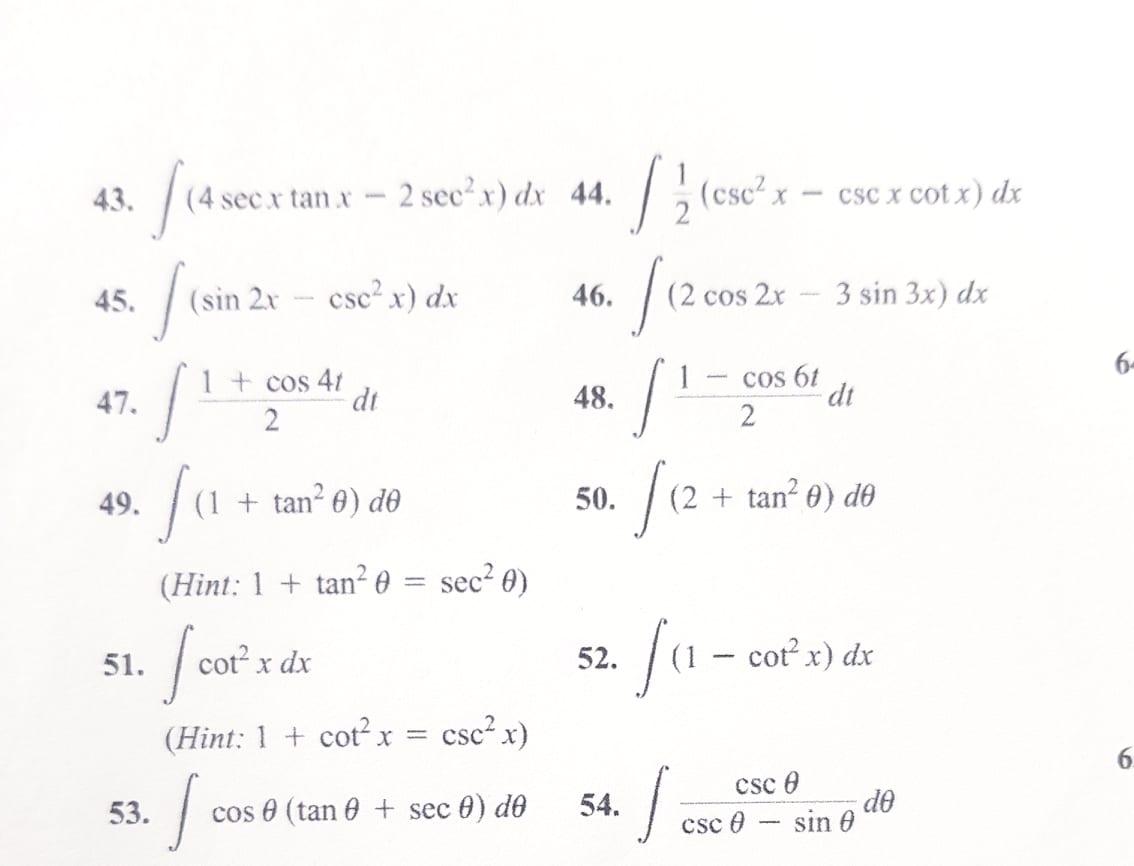 43. ∫ (4 sec x tan x − 2 sec² x) dx 44. ∫ 1/2 (csc² x − csc x cot x) dx
45. ∫ (sin 2x − csc² x) dx 46. ∫ (2 cos 2x − 3 sin 3x) dx
47. ∫ (1 + cos 4t)/2 dt 48. ∫ (1 − cos 6t)/2 dt
49. ∫ (1 + tan² θ) dθ 50. ∫ (2 + tan² θ) dθ
(Hint: 1 + tan² θ = sec² θ)
51. ∫ cot² x dx 52. ∫ (1 − cot² x) dx
(Hint: 1 + cot² x = csc² x)
53. ∫ cos θ (tan θ + sec θ) dθ 54. ∫ csc θ/(csc θ − sin θ) dθ